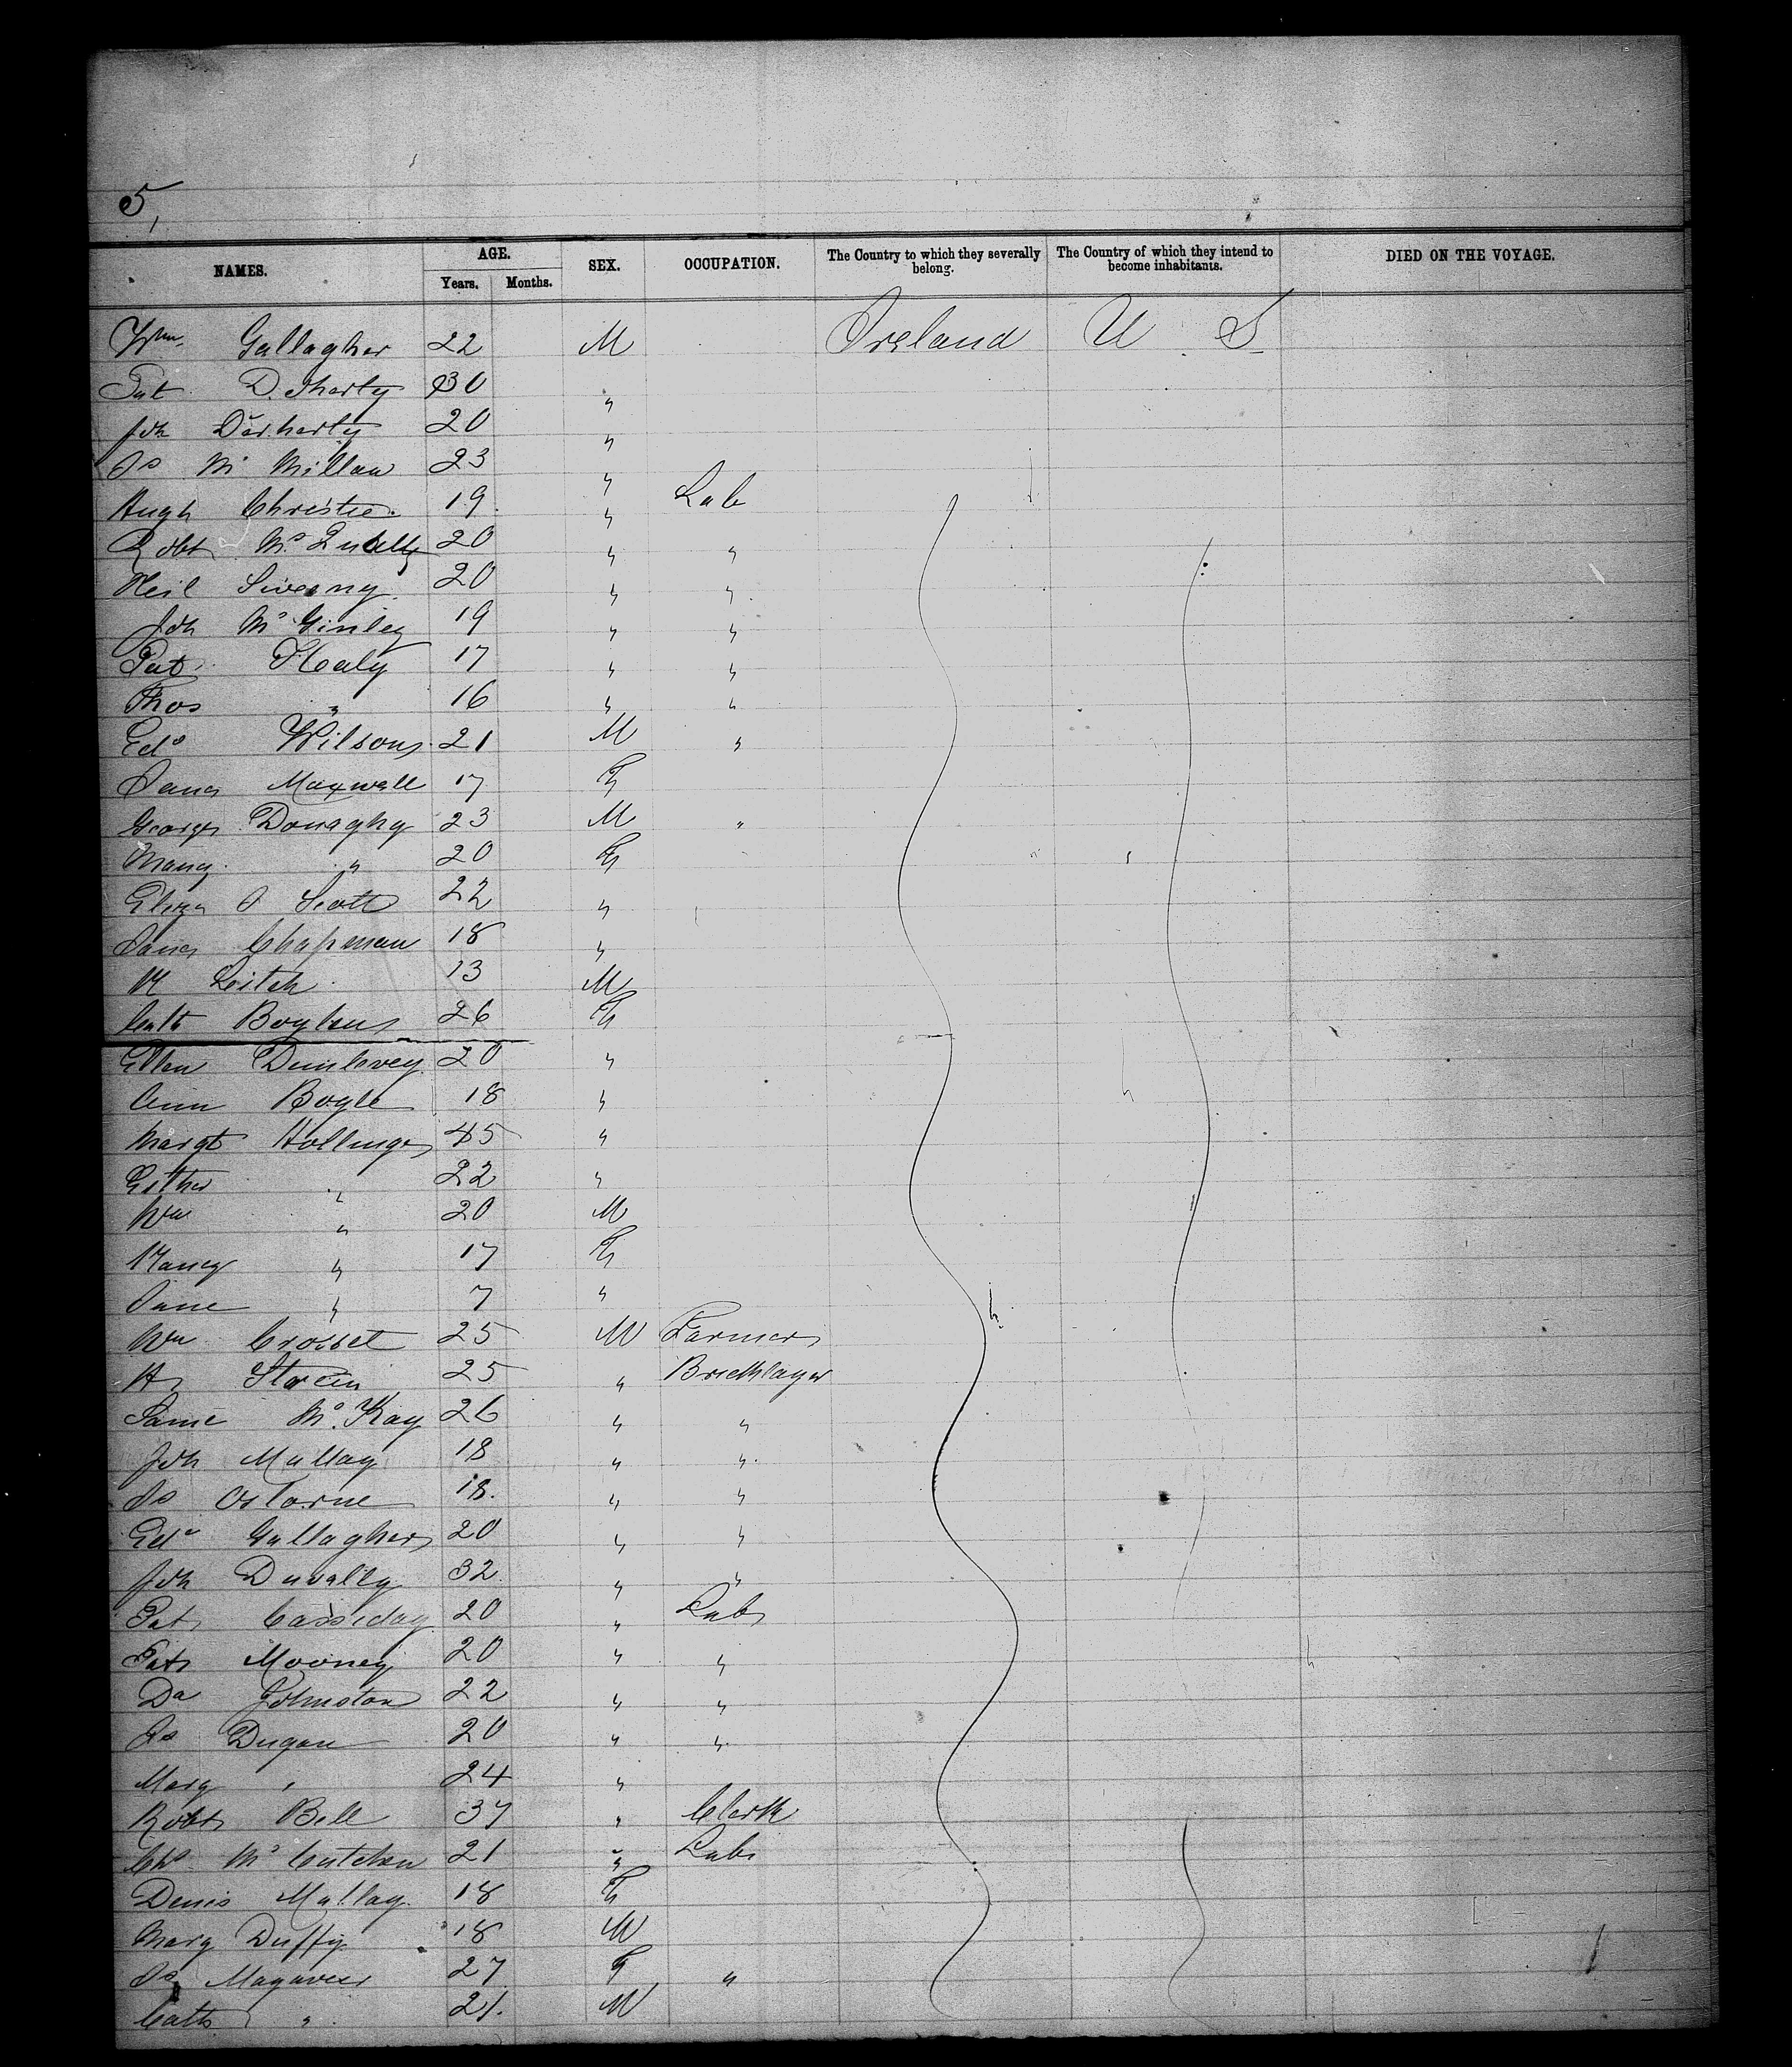 5,
NAMES. AGE. Years. Months. SEX. OCCUPATION. The Country to which they severally belong. The Country of which they intend to become inhabitants. DIED ON THE VOYAGE.
Wm. Gallagher 22 M Ireland U S
Pat Doherty 30 "
Joh Doherty 20 "
Js Mc Millan 23 "
Hugh Christie 19 " Lab
Robt Mc 20 " "
Neil Sweeny 20 " "
Joh Mc Ginley 19 " "
Pat Healy 17 " "
Thos " 16 " "
Edd Wilson 21 M "
Jane Maxwell 17 F
George Donaghy 23 M "
Mary " 20 F
Eliza J Scott 22 "
Jane Chapman 18 "
M Leitch 13 M
Cath Boylan 26 F
Ellen Dunlevey 20 "
Ann Boyle 18 "
Margt Hollinger 45 "
Esther " 22 "
Wm " 20 M
Nancy " 17 F
Jane " 7 "
Wm Crosset 25 M Farmer
Hy 25 " Bricklayer
Mc Kay 26 " "
Joh Mullay 18 " "
Js Osborne 18 " "
Edd Gallagher 20 " "
Joh 32 " "
Pat Cassiday 20 " Lab
Pat Mooney 20 " "
Da Johnston 22 " "
Js Dugan 20 " "
Mary " 24 "
Robt Bell 37 " Clerk
Chs Mc Cutchen 21 " Lab
Denis Mullay 18 F
Mary Duffy 18 M
Js 27 F "
Cath " 21 M